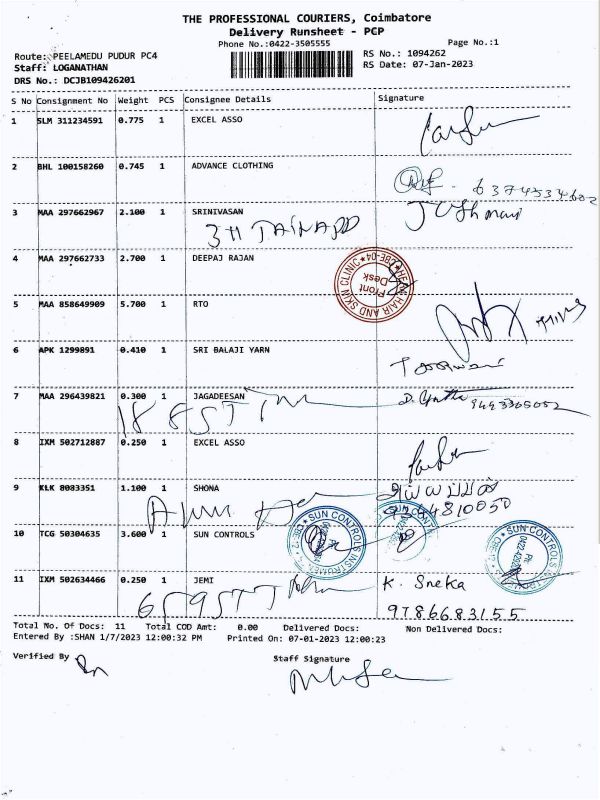 THE PROFESSIONAL COURIERS, Coimbatore
Delivery Runsheet - PCP
Phone No.:0422-3505555
Page No.:1
Route: PEELAMEDU PUDUR PC4
RS No.: 1094262
Staff: LOGANATHAN
RS Date: 07-Jan-2023
DRS No.: DCJB109426201
S No Consignment No Weight PCS Consignee Details Signature
1 SLM 311234591 0.775 1 EXCEL ASSO
2 BHL 100158260 0.745 1 ADVANCE CLOTHING
6374534602
3 MAA 297662967 2.100 1 SRINIVASAN
4 MAA 297662733 2.700 1 DEEPAJ RAJAN
HAIR AND SKIN CLINIC CBE-04
Front
Desk
5 MAA 858649909 5.700 1 RTO
6 APK 1299891 0.410 1 SRI BALAJI YARN
7 MAA 296439821 0.300 1 JAGADEESAN
8 IXM 502712887 0.250 1 EXCEL ASSO
9 KLK 8083351 1.100 1 SHONA
9364810050
10 TCG 50304635 3.600 1 SUN CONTROLS
SUN CONTROLS
SUN CONTROLS
SUN CONTROLS
11 IXM 502634466 0.250 1 JEMI
K. Sneka
9786683155
Total No. Of Docs: 11 Total COD Amt: 0.00 Delivered Docs: Non Delivered Docs:
Entered By :SHAN 1/7/2023 12:00:32 PM Printed On: 07-01-2023 12:00:23
Verified By
Staff Signature